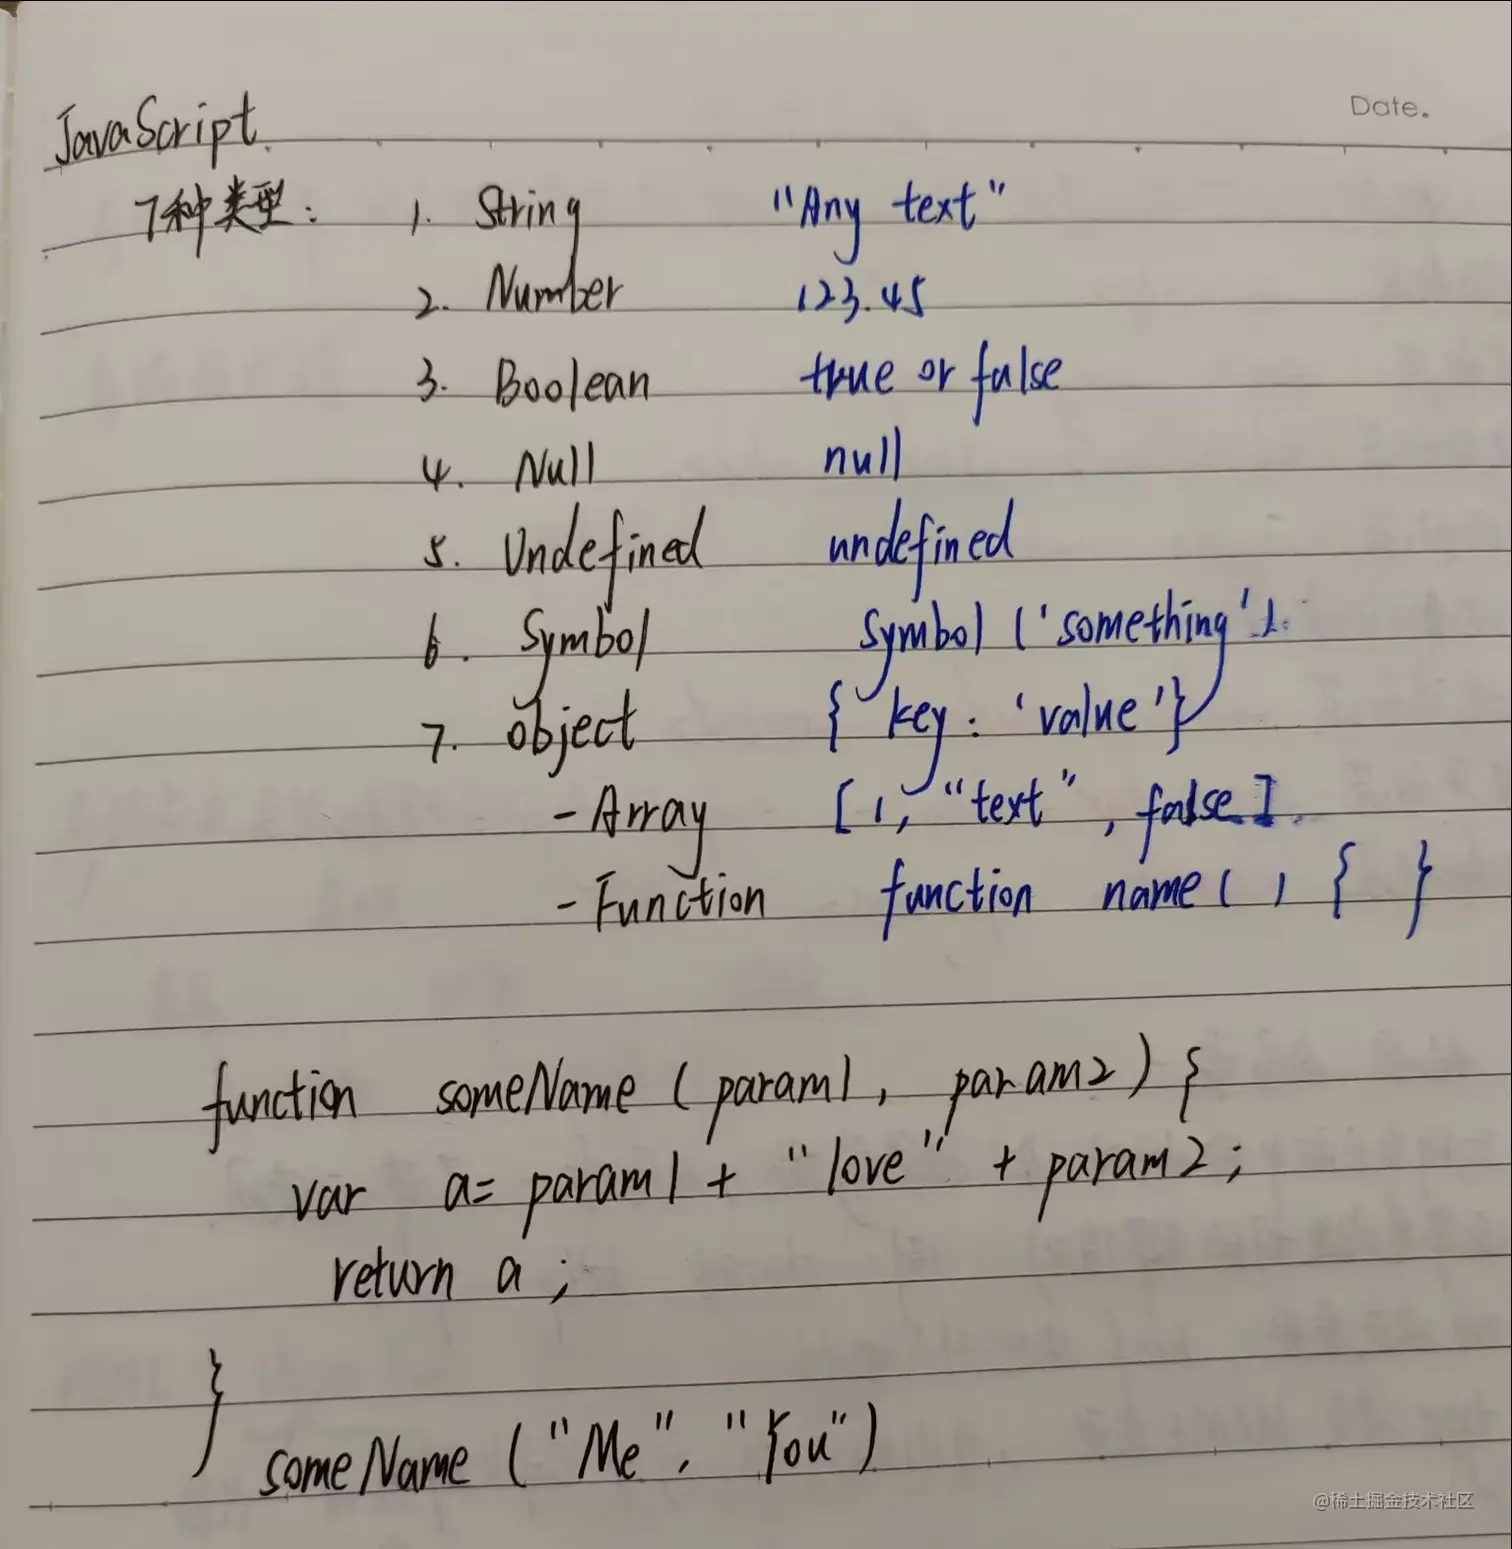 Date.
JavaScript
7种类型: 1. String "Any text"
2. Number 123.45
3. Boolean true or false
4. Null null
5. Undefined undefined
6. Symbol Symbol ('something').
7. object { key: 'value'}
- Array [1, "text", false].
- Function function name() { }
function someName (param1, param2) {
var a= param1 + "love" + param2;
return a;
}
someName ("Me", "You")
@稀土掘金技术社区